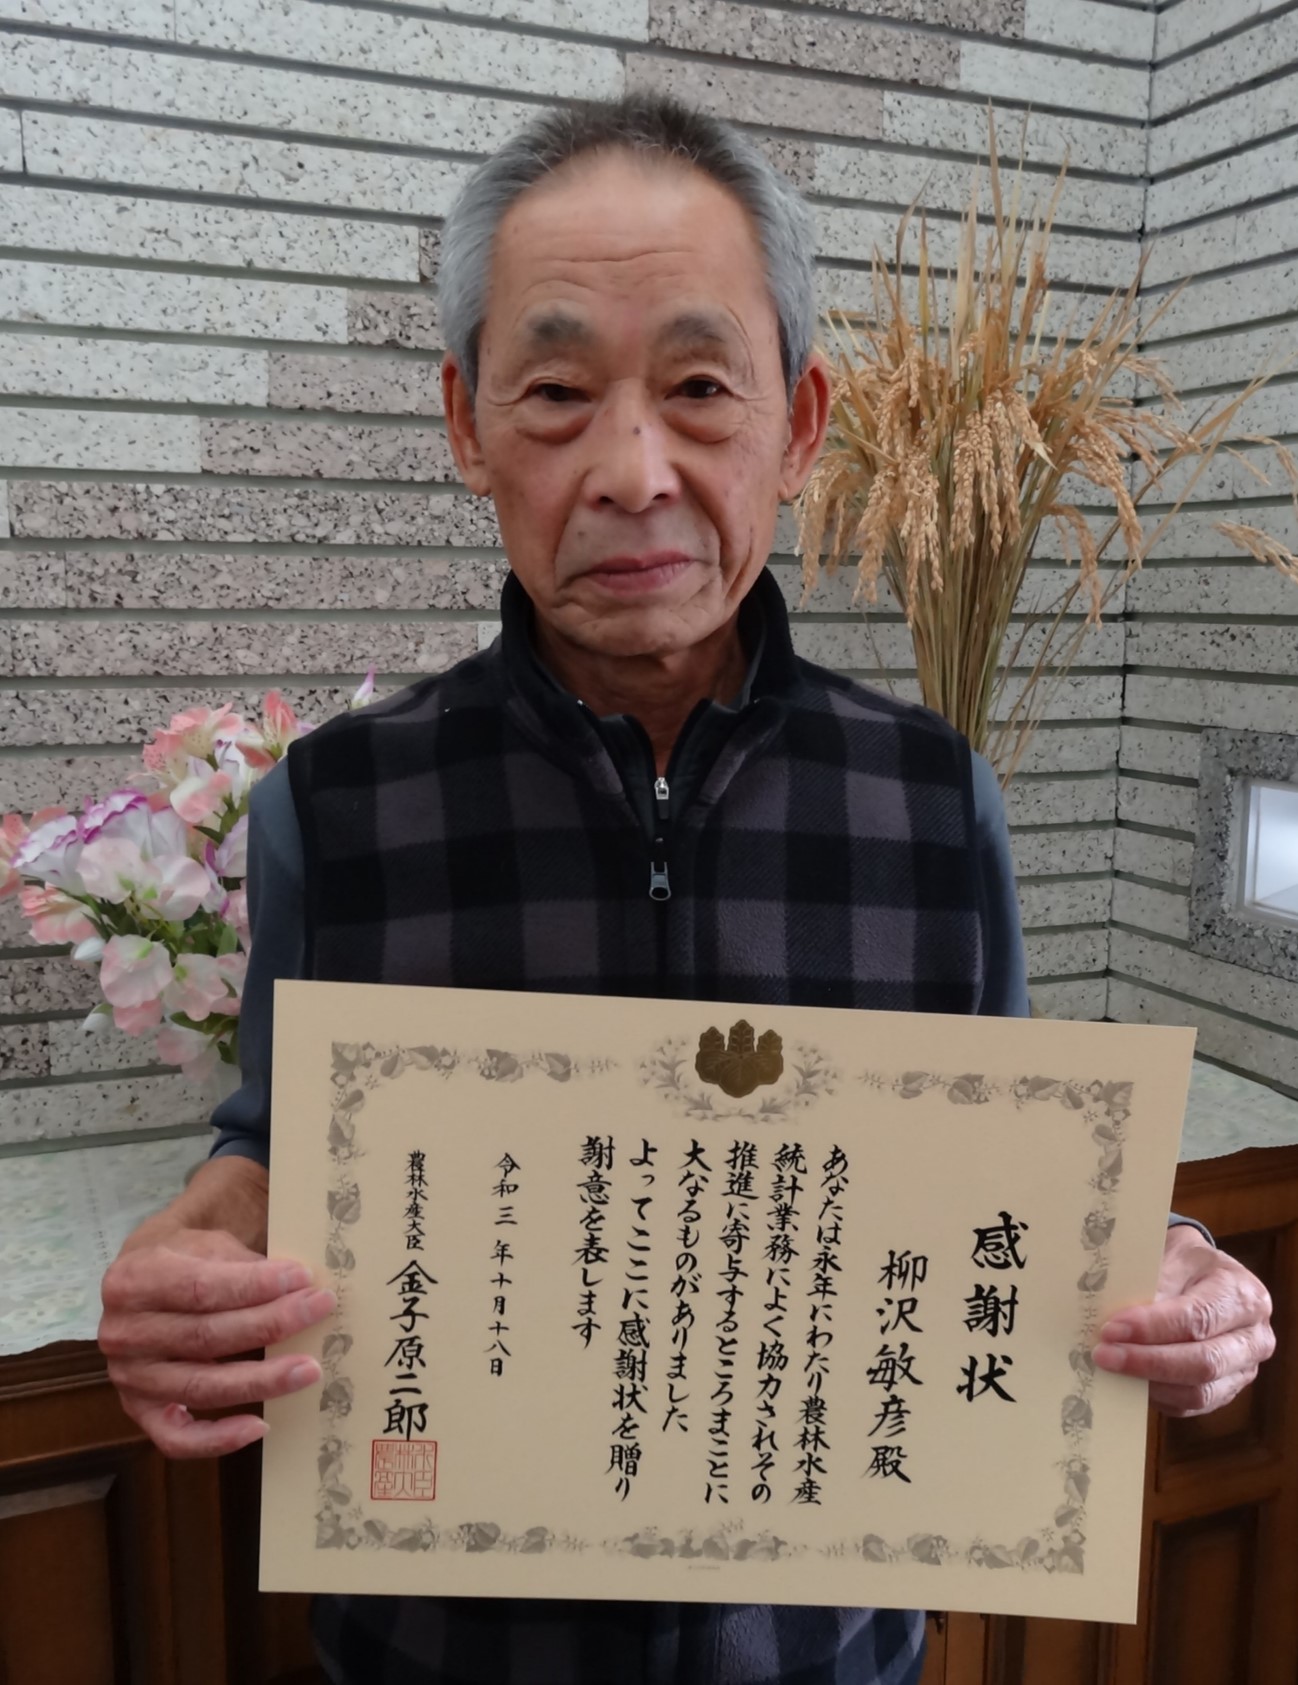 感謝状
柳沢敏彦殿
あなたは永年にわたり農林水産
統計業務によく協力されその
推進に寄与するところまことに
大なるものがありました
よってここに感謝状を贈り
謝意を表します
令和三年十月十八日
農林水産大臣 金子原二郎